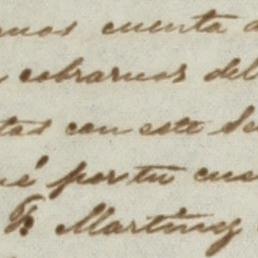 mos cuenta
cobrarnos del
tas con este Se
por tu cue
Martinez